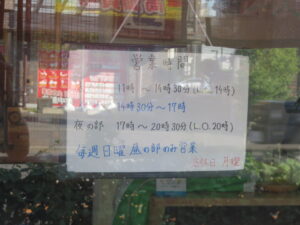 営業時間
11時 〜 14時30分(L.O.14時)
14時30分〜17時
夜の部 17時〜20時30分(L.O.20時)
毎週日曜 昼の部のみ営業
定休日 月曜